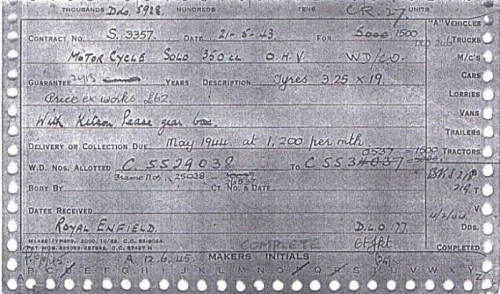 THOUSANDS D.Lo. 5928. HUNDREDS TENS C.R. 27. UNITS
"A" VEHICLES
CONTRACT No. S. 3357. DATE 21-6-43. FOR 5000 1500
TRUCKS
MOTOR CYCLE SOLO 350 cc O.H.V. W.D/C.O.
M/C's
GUARANTEE YEARS DESCRIPTION Tyres 3.25 x 19.
CARS
Price ex works £62
LORRIES
With Kitson Pease gear box.
VANS
TRAILERS
DELIVERY OR COLLECTION DUE May 1944. at 1,200 per mth
TRACTORS
W.D. Nos. ALLOTTED C. 5529038 TO C 553
Frame Nos. 25038
BODY BY CT. No. & DATE
DATES RECEIVED
V
ROYAL ENFIELD. D.L.O. 177.
Dos.
COMPLETE
COMPLETED
A. 12.6.45. MAKERS INITIALS
A B C D E F G H I J K L M N O P Q R S T U V W X Y Z